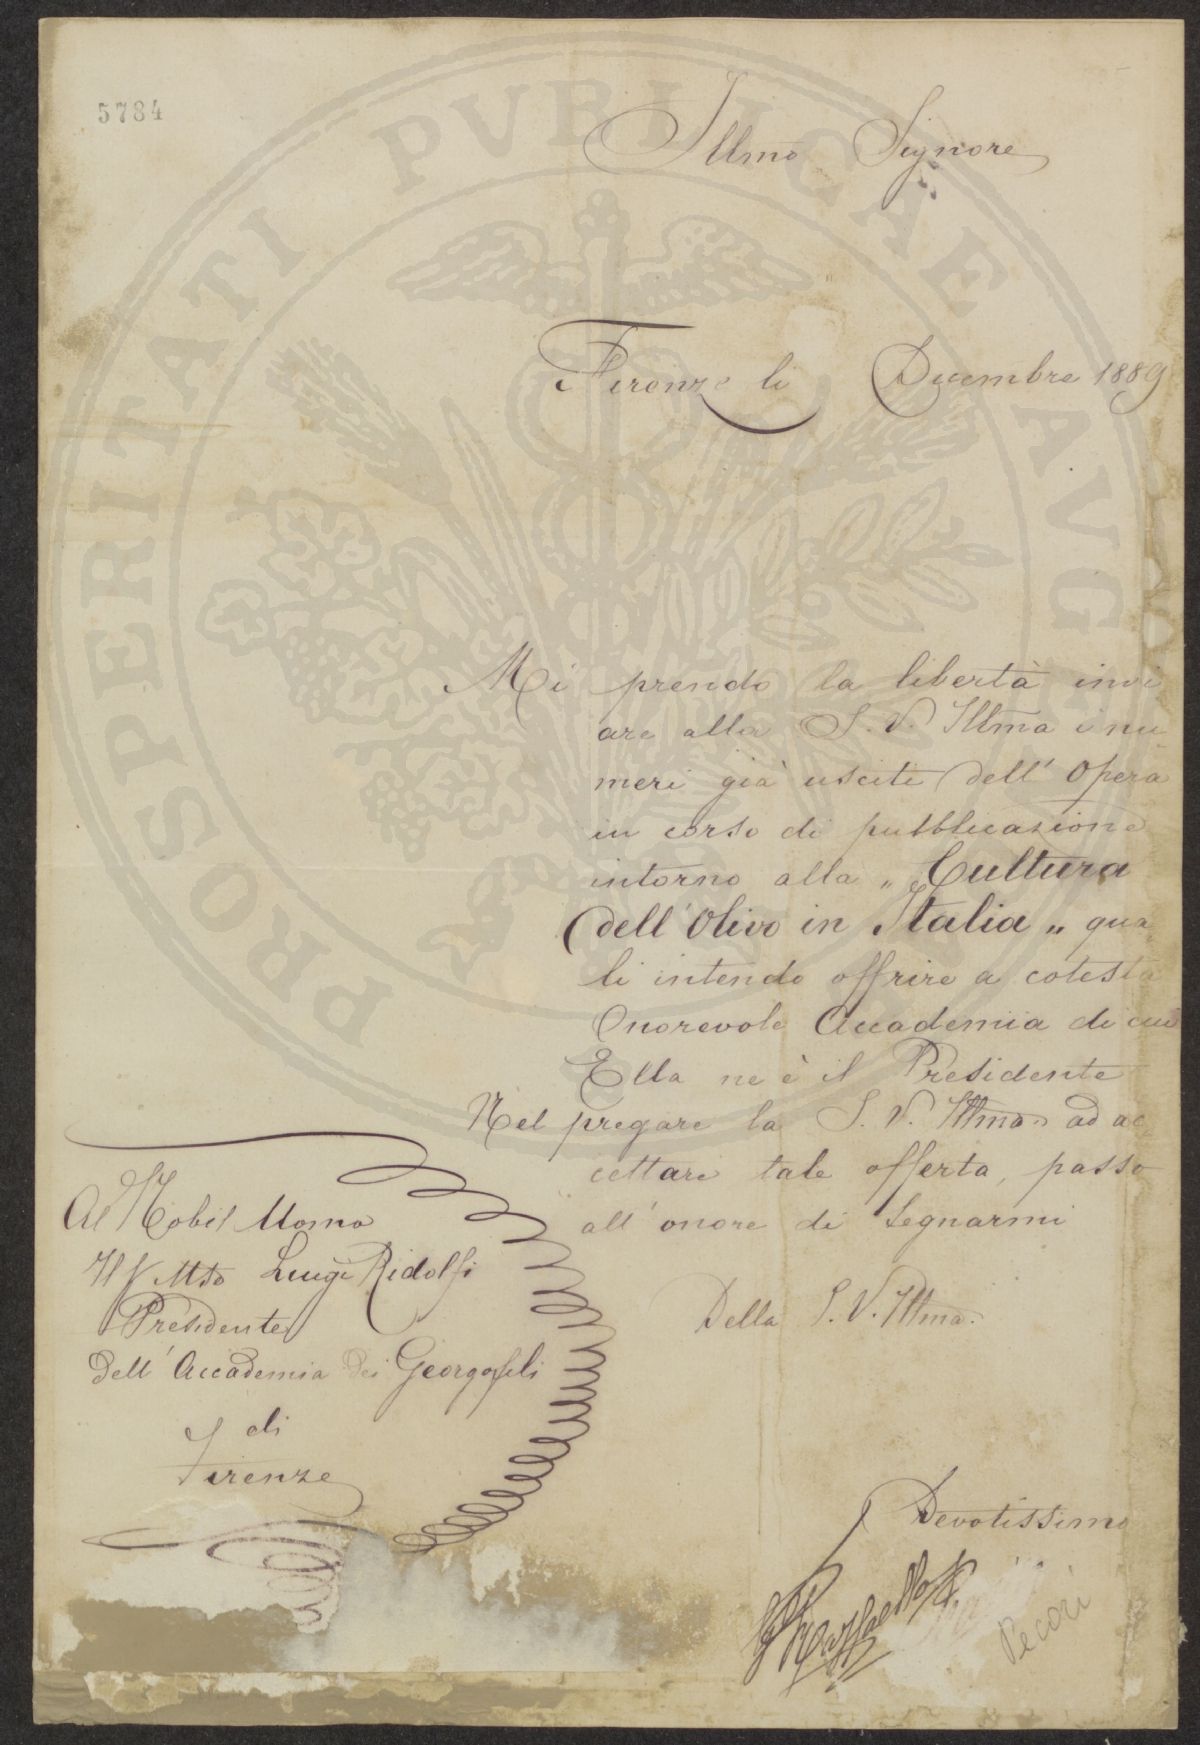 5784
PROSPERITATI PVBLICAE AVG
Illmo Signore
Firenze li Decembre 1889
Mi prendo la libertà invi
are alla S. V. Illma i nu
meri già usciti dell' Opera
in corso di pubblicazione
intorno alla „ Cultura
dell' Olivo in Italia „ qua
li intendo offrire a cotesta
Onorevole Accademia di cui
Ella ne è il Presidente
Nel pregare la S. V. Illma ad ac
cettare tale offerta, passo
all' onore di segnarmi
Della S. V. Illma.
Al Nobil Uomo
Luigi Ridolfi
Presidente
dell' Accademia dei Georgofili
di
Firenze
Devotissimo
Raffaello
Pecori